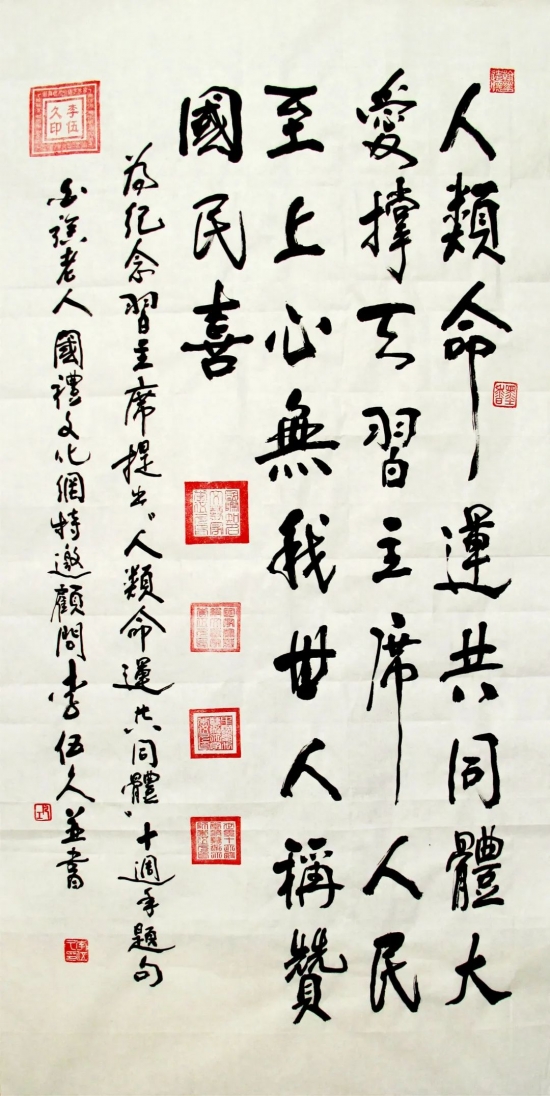 人類命運共同體大
愛撑天習主席人民
至上心無我世人稱贊
國民喜
為紀念習主席提出“人類命運共同體”十週年題句
老人國禮文化網特邀顧問李伍久並書
李伍
久印